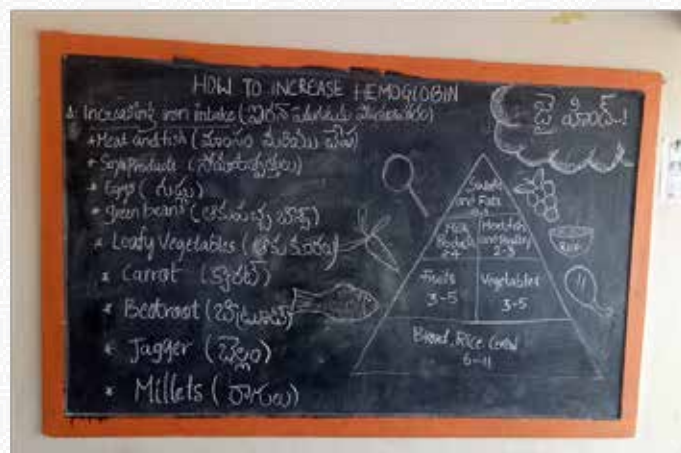 HOW TO INCREASE HEMOGLOBIN
Increasing iron intake (ఐరన్
* Meat and fish (మాంసం మరియు చేప)
* Soya Products (సోయా
* Eggs (గుడ్లు)
* green beans (ఆకుపచ్చ బీన్స్)
* Leafy Vegetables (ఆకుకూరలు)
* Carrot (క్యారెట్)
* Beetroot (బీట్రూట్)
* Jagger (బెల్లం)
* Millets (రాగులు)
జై హింద్..!
Sweets
and Fats
Milk
Products
2-4
Meat, fish
and Poultry
2-3
Fruits
3-5
Vegetables
3-5
Bread, Rice Cereal
6-11
RICE